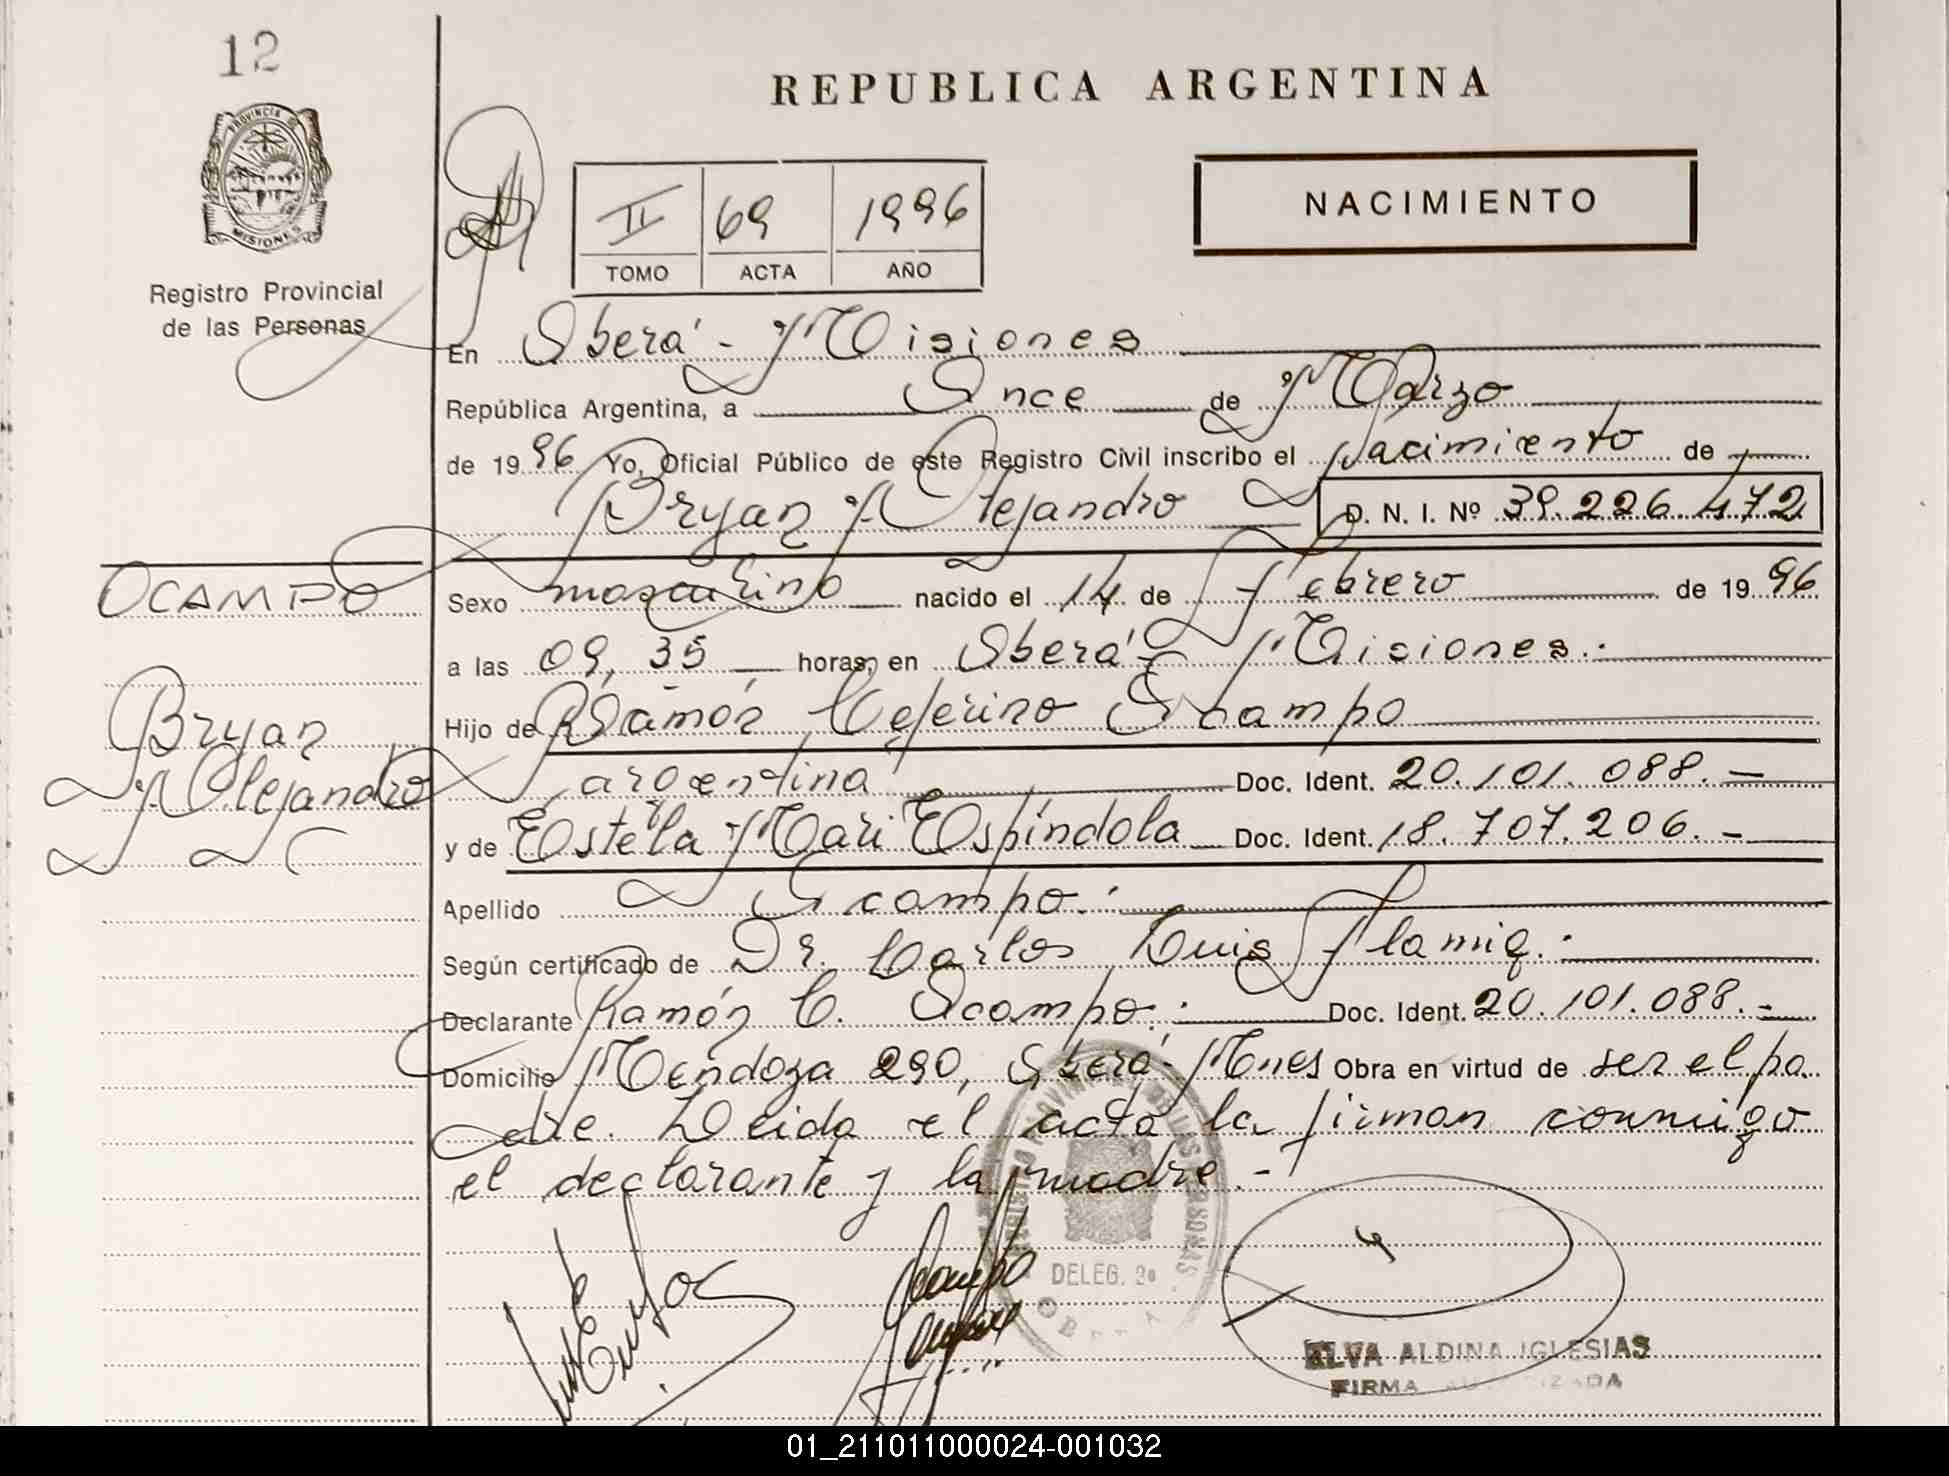 12
REPUBLICA ARGENTINA
PROVINCIA DE
MISIONES
II 69 1996
NACIMIENTO
TOMO ACTA AÑO
Registro Provincial
de las Personas
En Oberá - Misiones
República Argentina, a Once de Marzo
de 1996 Yo, Oficial Público de este Registro Civil inscribo el Nacimiento de
Bryan Alejandro D. N. I. Nº 39.226.472
OCAMPO
Sexo masculino nacido el 14 de Febrero de 1996
a las 09,35 horas, en Oberá - Misiones.-
Bryan
Alejandro
Hijo de Ramón Ceferino Ocampo
argentina Doc. Ident. 20.101.088.-
y de Estela Mari Espíndola Doc. Ident. 18.707.206.-
Apellido Ocampo.-
Según certificado de Dr. Carlos Luis Flamiq.-
Declarante Ramón C. Ocampo.- Doc. Ident. 20.101.088.-
Domicilio Mendoza 290, Oberá - Mnes Obra en virtud de ser el pa
dre. Leida el acta la firman conmigo
el declarante y la madre.-
DELEG.
Ocampo
ELVA ALDINA IGLESIAS
FIRMA AUTORIZADA
01_211011000024-001032